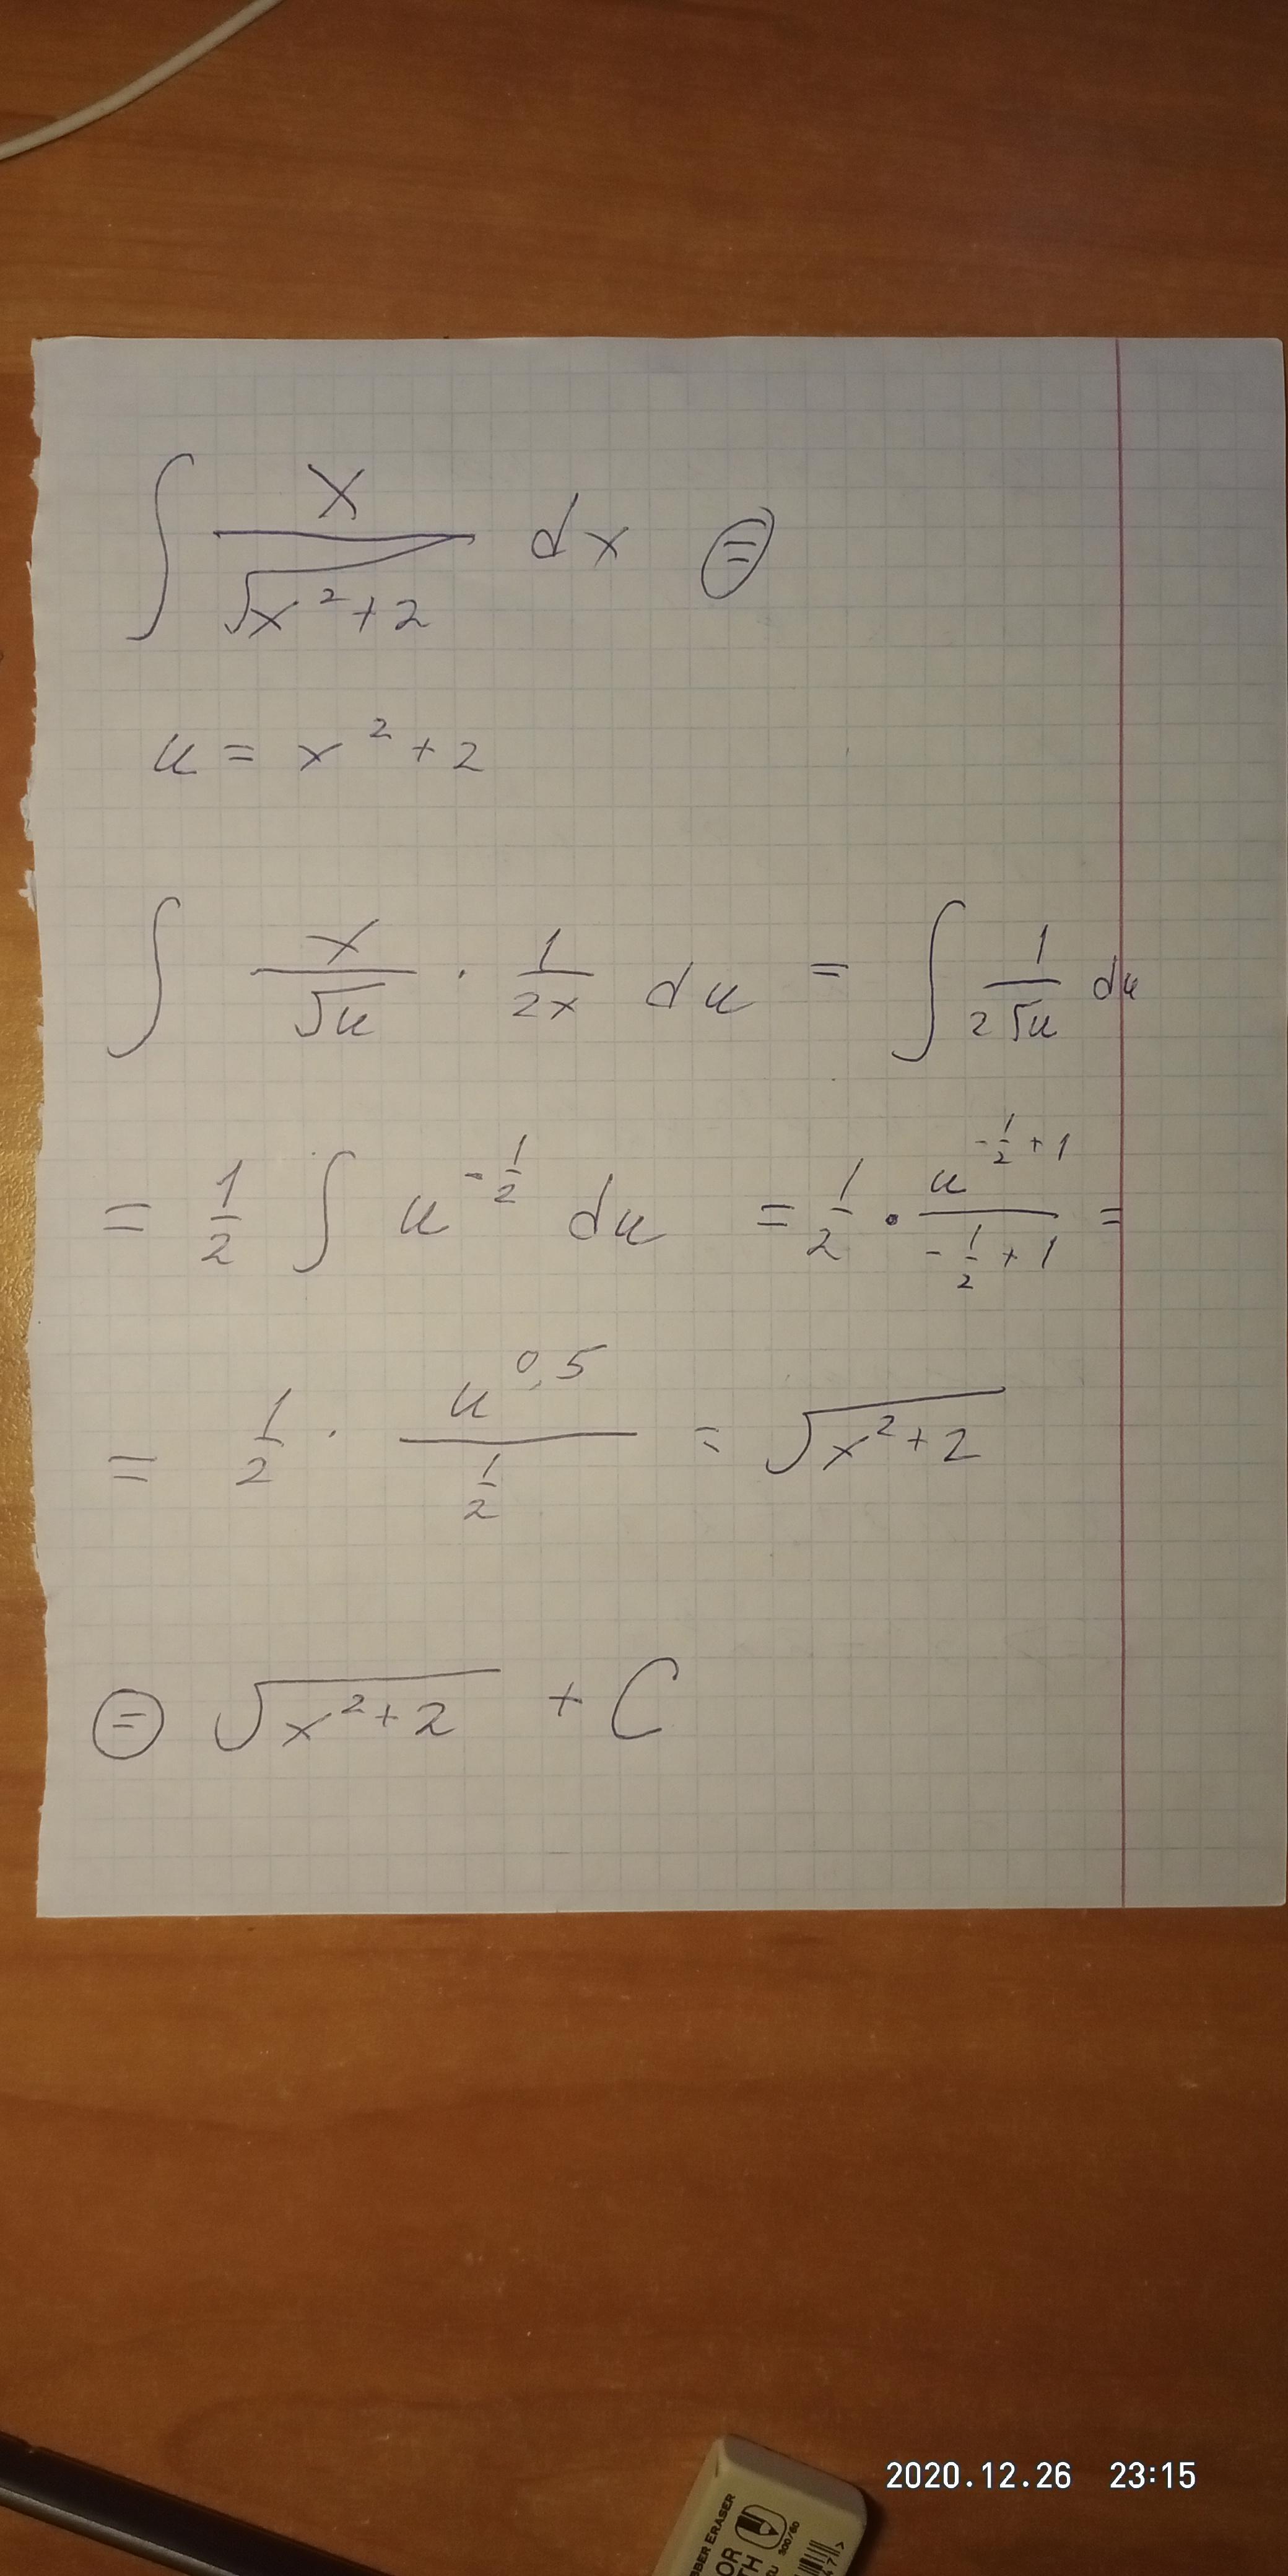 ∫ x/√(x²+2) dx ⊜
u = x² + 2
∫ x/√u · 1/2x du = ∫ 1/2√u du
= 1/2 ∫ u^(-1/2) du = 1/2 · u^(-1/2+1)/(-1/2+1) =
= 1/2 · u^0,5/(1/2) = √(x²+2)
⊜ √(x²+2) + C
2020.12.26 23:15
BBER ERASER
OR
TH
300/60